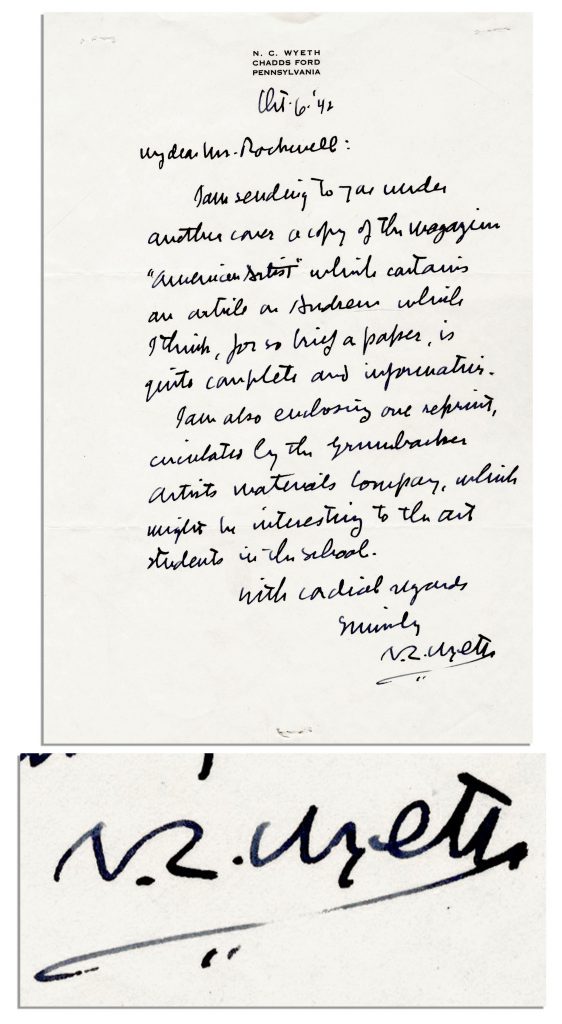 N. C. WYETH
CHADDS FORD
PENNSYLVANIA
Oct. 6. '42
My dear Mr. Rockwell:
I am sending to you under
another cover a copy of the magazine
"American Artist" which contains
an article on Andrew which
I think, for so brief a paper, is
quite complete and informative.
I am also enclosing one reprint,
circulated by the Grumbacher
Artists Materials Company, which
might be interesting to the art
students in the school.
With cordial regards
Sincerely
N. C. Wyeth
N. C. Wyeth